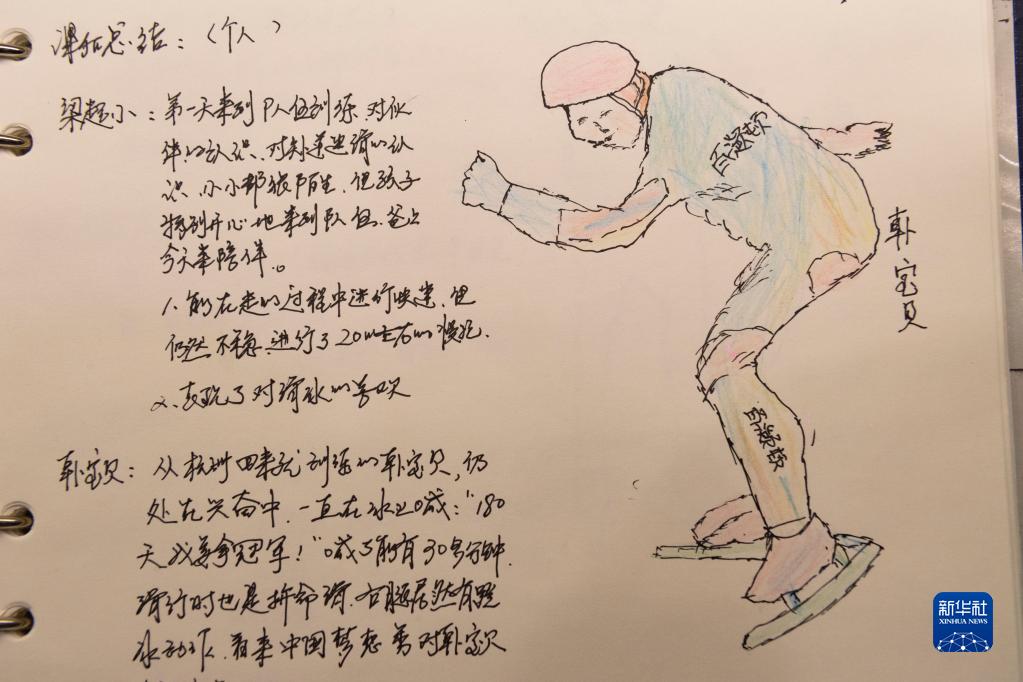 课程总结：（个人）
梁超小：第一天来到队伍训练.对伙
伴的认识.对短道速滑的认
识.小小都很陌生.但孩子
特别开心地来到队伍.爸爸
今天来陪伴。
1、能在走的过程中进行映迷.但
仍然不稳.进行了20m左右的慢跑.
2、表现了对滑冰的喜欢
卦宝贝：从杭州回来就训练的卦宝贝,仍
处在兴奋中.一直在冰上喊："180
天我要拿冠军！"喊了能有30多分钟.
滑行时也是拼命滑.右腿居然有蹬
冰动作.看来中国梦想秀对卦宝贝
百灏顿
百灏顿
卦宝贝
新华社
XINHUA NEWS